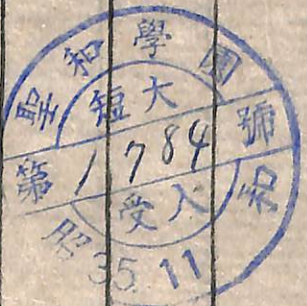 聖和學園
短大
第1784號
受入
昭35.11